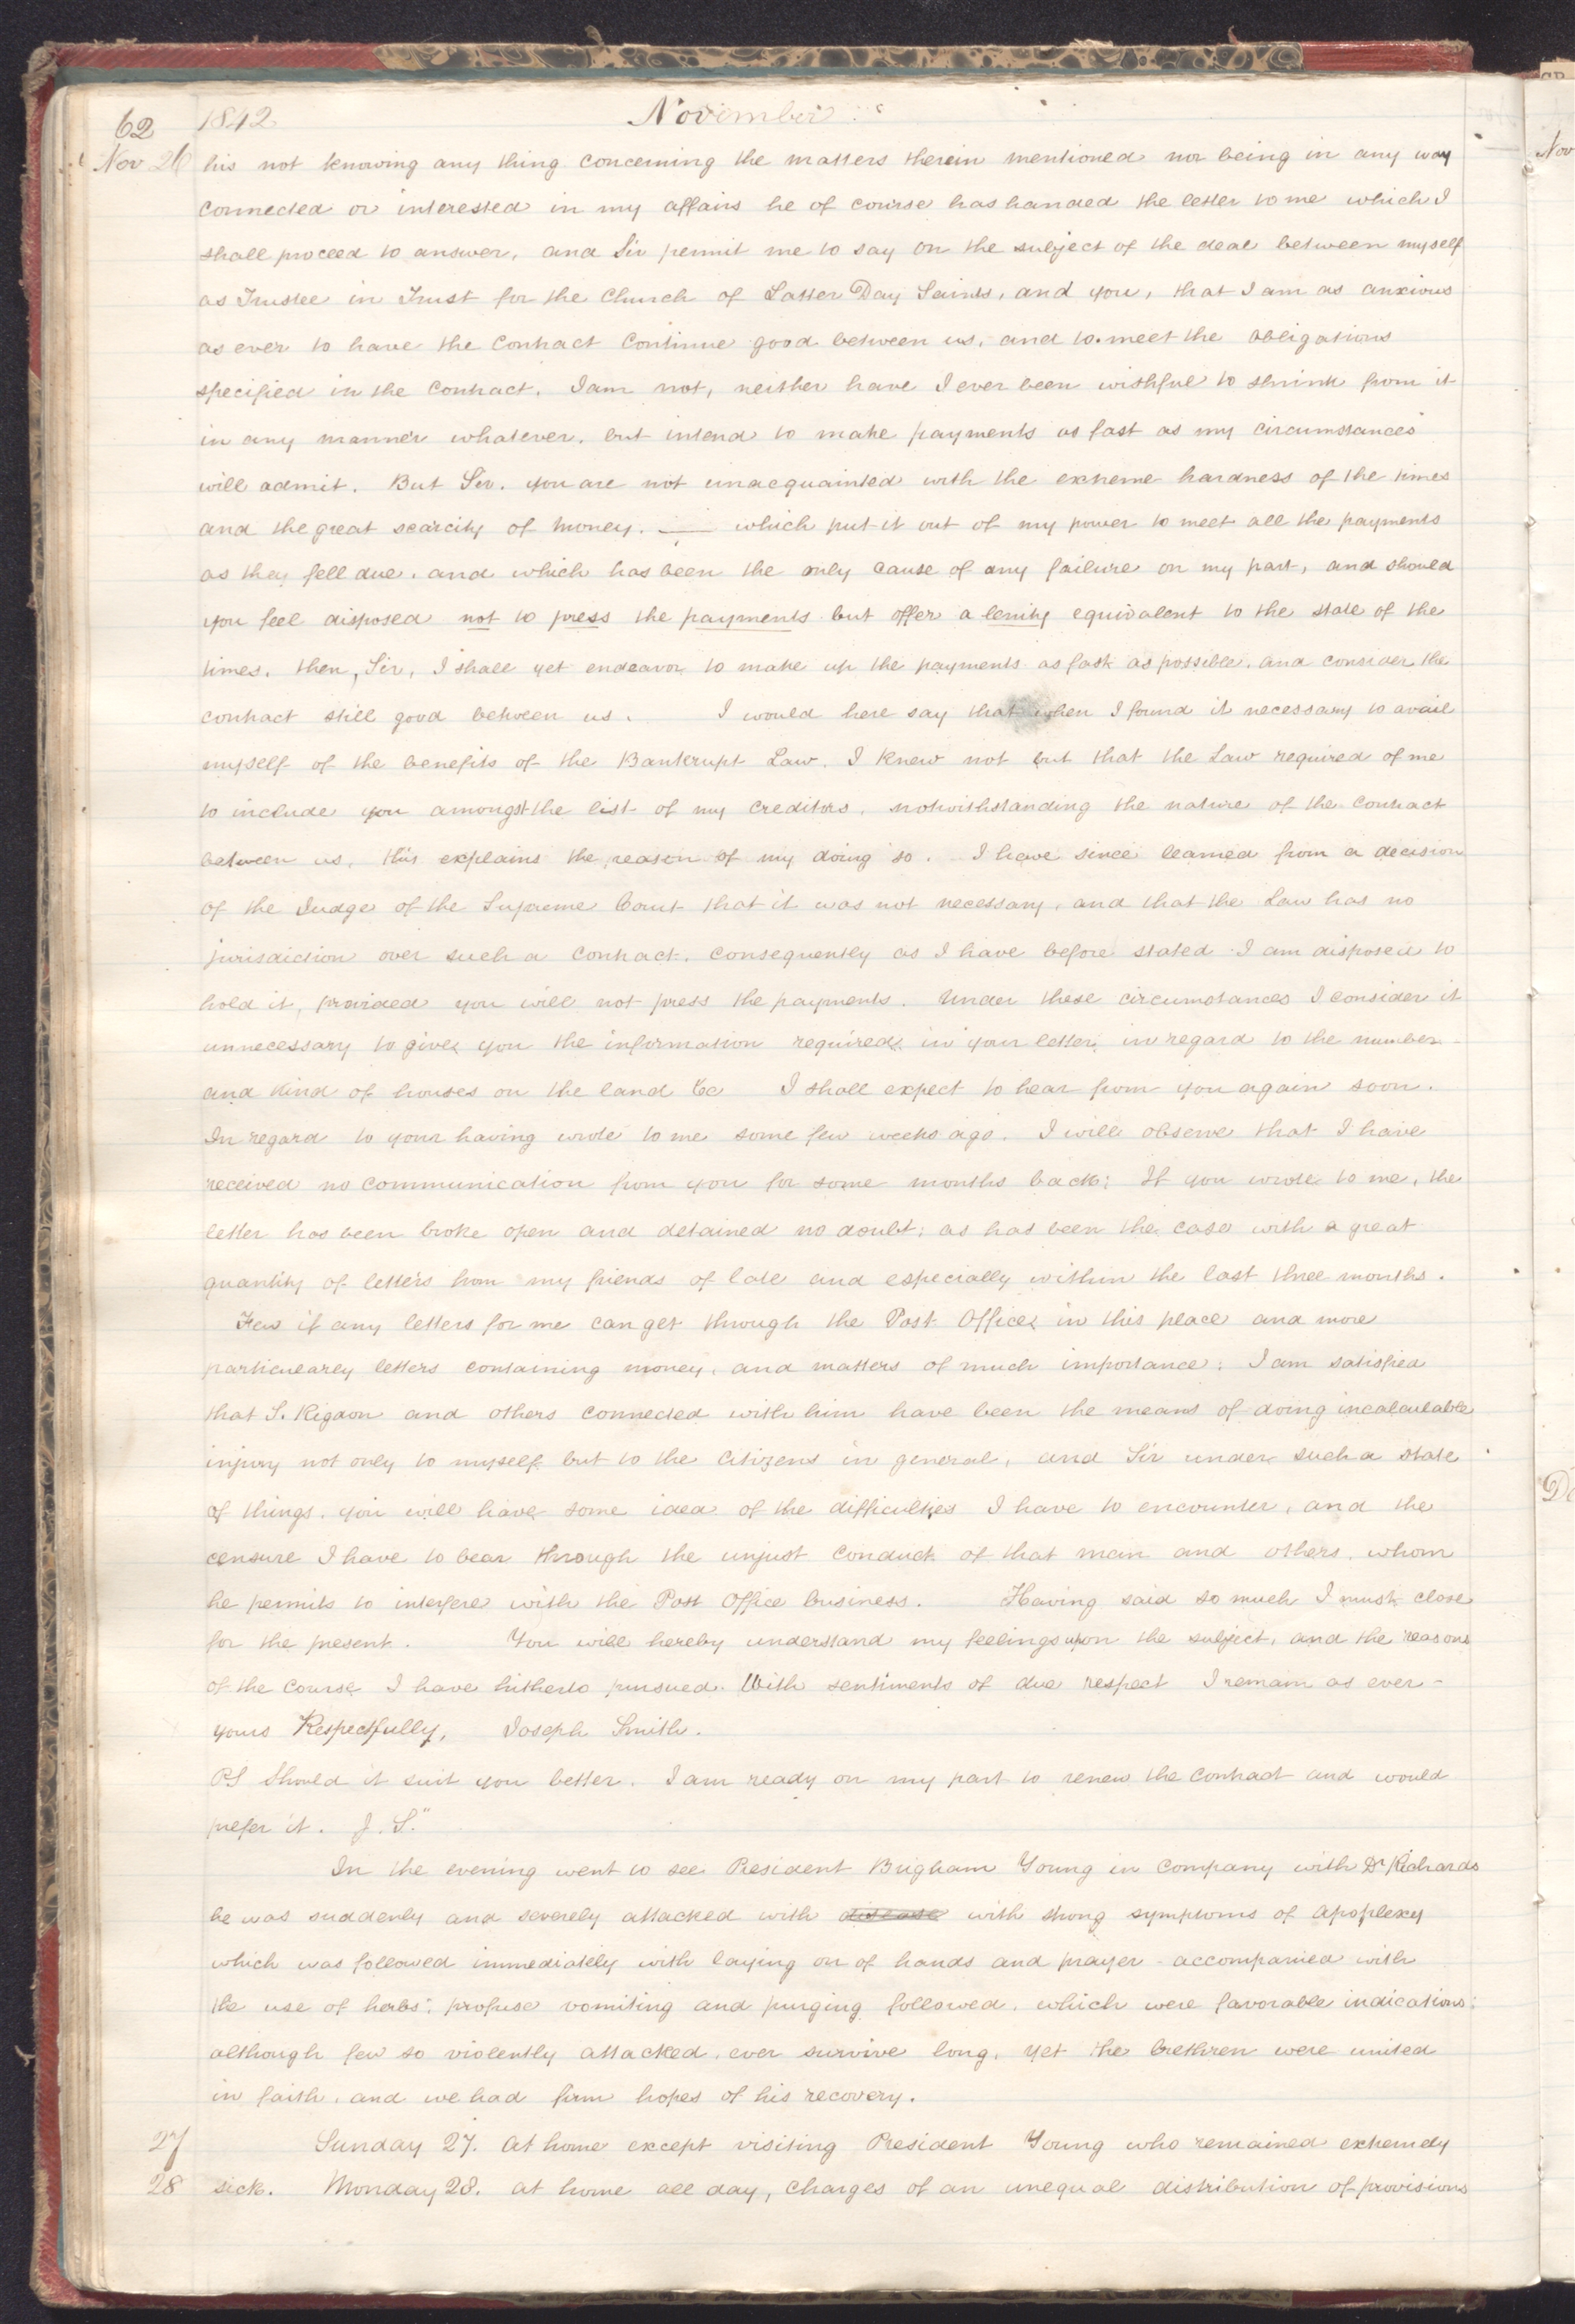 62 1842 November
Nov 26 his not knowing any thing concerning the matters therein mentioned nor being in any way
connected or interested in my affairs he of course has handed the letter to me which I
shall proceed to answer, and Sir permit me to say on the subject of the deal between myself
as Trustee in Trust for the Church of Latter Day Saints, and you, that I am as anxious
as ever to have the contract continue good between us, and to meet the obligations
specified in the contract. I am not, neither have I ever been wishful to shrink from it
in any manner whatever, but intend to make payments as fast as my circumstances
will admit. But Sir. you are not unacquainted with the extreme hardness of the times
and the great scarcity of money. — which put it out of my power to meet all the payments
as they fell due, and which has been the only cause of any failure on my part, and should
you feel disposed not to press the payments but offer a lenity equivalent to the state of the
times. then, Sir, I shall yet endeavor to make up the payments as fast as possible, and consider the
contract still good between us. I would here say that when I found it necessary to avail
myself of the benefits of the Bankrupt Law, I knew not but that the Law required of me
to include you amongst the list of my creditors, notwithstanding the nature of the contract
between us, this explains the reason of my doing so. I have since learned from a decision
of the Judge of the Supreme Court that it was not necessary, and that the Law has no
jurisdiction over such a contract, consequently as I have before stated I am disposed to
hold it, provided you will not press the payments. Under these circumstances I consider it
unnecessary to give you the information required in your letter in regard to the number
and kind of houses on the land &c I shall expect to hear from you again soon.
In regard to your having wrote to me some few weeks ago. I will observe that I have
received no communication from you for some months back; If you wrote to me, the
letter has been broke open and detained no doubt; as has been the case with a great
quantity of letters from my friends of late and especially within the last three months.
Few if any letters for me can get through the Post Office in this place and more
particularly letters containing money, and matters of much importance; I am satisfied
that S. Rigdon and others connected with him have been the means of doing incalculable
injury not only to myself but to the citizens in general, and Sir under such a state
of things, you will have some idea of the difficulties I have to encounter, and the
censure I have to bear through the unjust conduct of that man and others, whom
he permits to interfere with the Post Office business. Having said so much I must close
for the present. You will hereby understand my feelings upon the subject, and the reasons
of the course I have hitherto pursued. With sentiments of due respect I remain as ever-
yours Respectfully, Joseph Smith.
PS Should it suit you better. I am ready on my part to renew the contract and would
prefer it. J. S."
In the evening went to see President Brigham Young in company with Dr Richards
he was suddenly and severely attacked with disease with strong symptoms of apoplexy
which was followed immediately with laying on of hands and prayer accompanied with
the use of herbs; profuse vomiting and purging followed, which were favorable indications;
although few so violently attacked, ever survive long, yet the brethren were united
in faith, and we had firm hopes of his recovery.
27 Sunday 27. At home except visiting President Young who remained extremely
28 sick. Monday 28. at home all day, charges of an unequal distribution of provisions
Nov
De